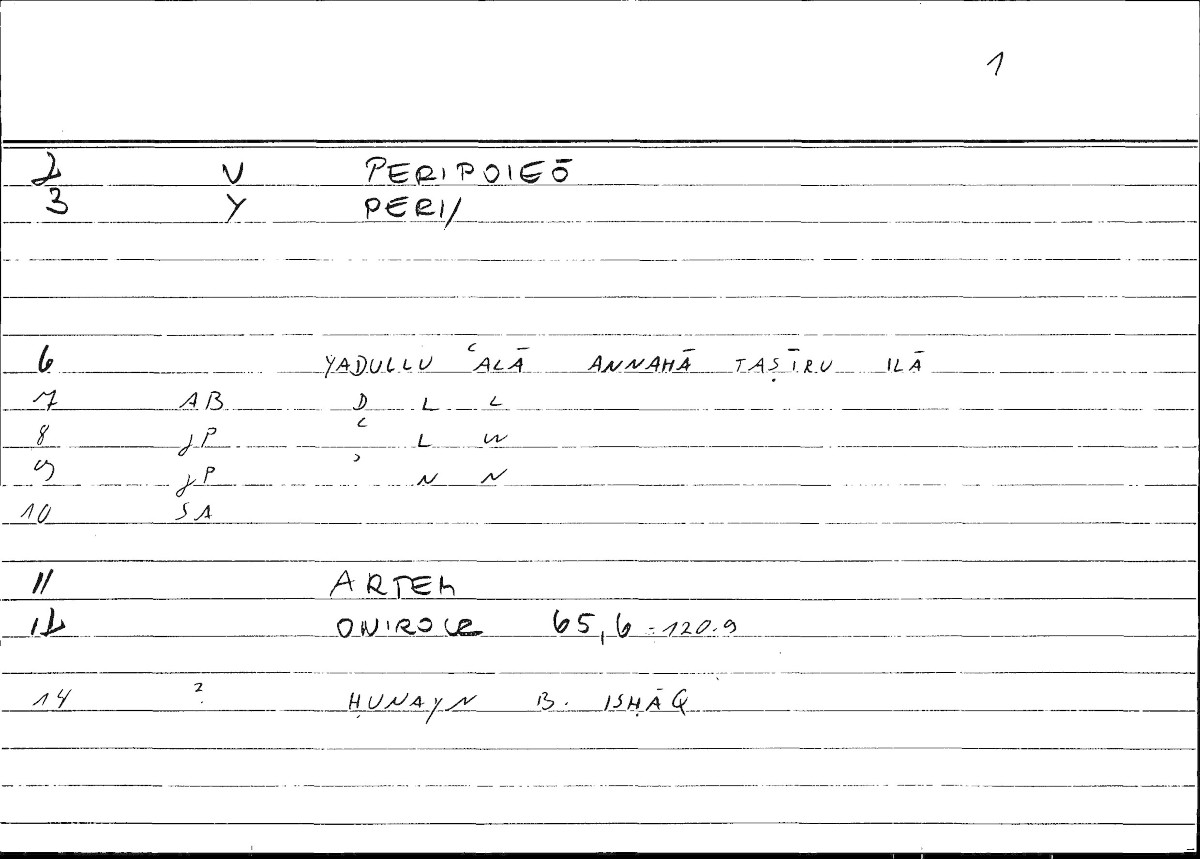 1
2 V PERIPOIEŌ
3 Y PERI/
6 YADULLU ʿALĀ ANNAHĀ TAṢĪRU ILĀ
7 AB D L L
8 JP ʿ L W
9 JP ʾ N N
10 SA
11 ARTEM
12 ONIROCR 65,6 = 120.9
14 ? ḤUNAYN B. ISḤĀQ